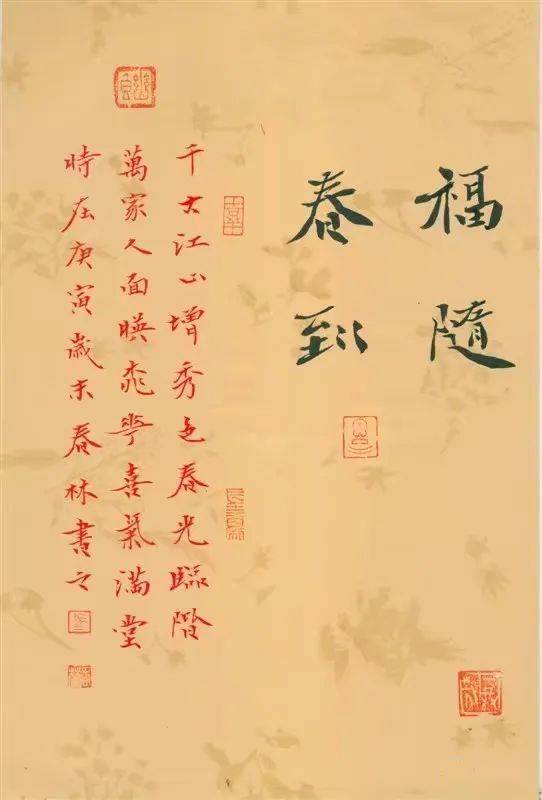 福隨
春到
千古江山增秀色春光臨階
萬家人面暎桃華喜氣滿堂
時在庚寅歲末春林書之